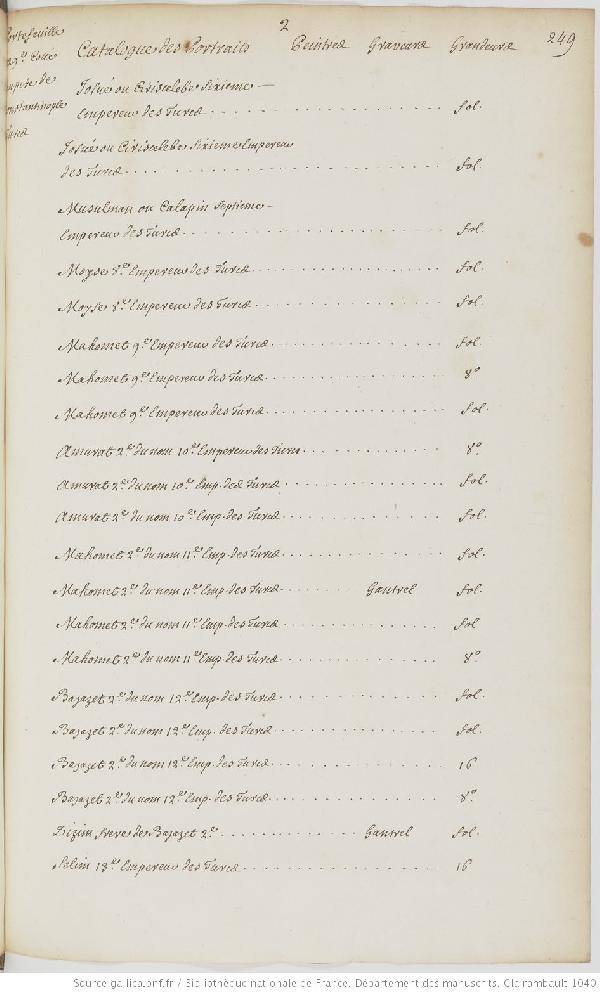 2
249
Portefeuille
Coté
Empire de
Constantinople
Turcs
Catalogue des Portraits Peintres Graveurs Grandeurs
Josué ou Ciriscelebe Sixieme
Empereur des Turcs fol.
Josué ou Ciriscelebe Sixieme Empereur
des Turcs fol.
Musulman ou Calapin Septieme
Empereur des Turcs fol.
Moyse 8.e Empereur des Turcs fol.
Moyse 8.e Empereur des Turcs fol.
Mahomet 9.e Empereur des Turcs fol.
Mahomet 9.e Empereur des Turcs 8.o
Mahomet 9.e Empereur des Turcs fol.
Amurat 2.e du nom 10.e Empereur des Turcs 8.o
Amurat 2.e du nom 10.e Emp. des Turcs fol.
Amurat 2.e du nom 10.e Emp. des Turcs fol.
Mahomet 2.e du nom 11.e Emp. des Turcs fol.
Mahomet 2.e du nom 11.e Emp. des Turcs Gantrel fol.
Mahomet 2.e du nom 11.e Emp. des Turcs fol.
Mahomet 2.e du nom 11.e Emp. des Turcs 8.o
Bajazet 2.e du nom 12.e Emp. des Turcs fol.
Bajazet 2.e du nom 12.e Emp. des Turcs fol.
Bajazet 2.e du nom 12.e Emp. des Turcs 16
Bajazet 2.e du nom 12.e Emp. des Turcs 8.o
Zizim frere de Bajazet 2.e Gantrel fol.
Selim 13.e Empereur des Turcs 16
Source gallica.bnf.fr / Bibliothèque nationale de France. Département des manuscrits. Clairambault 1040